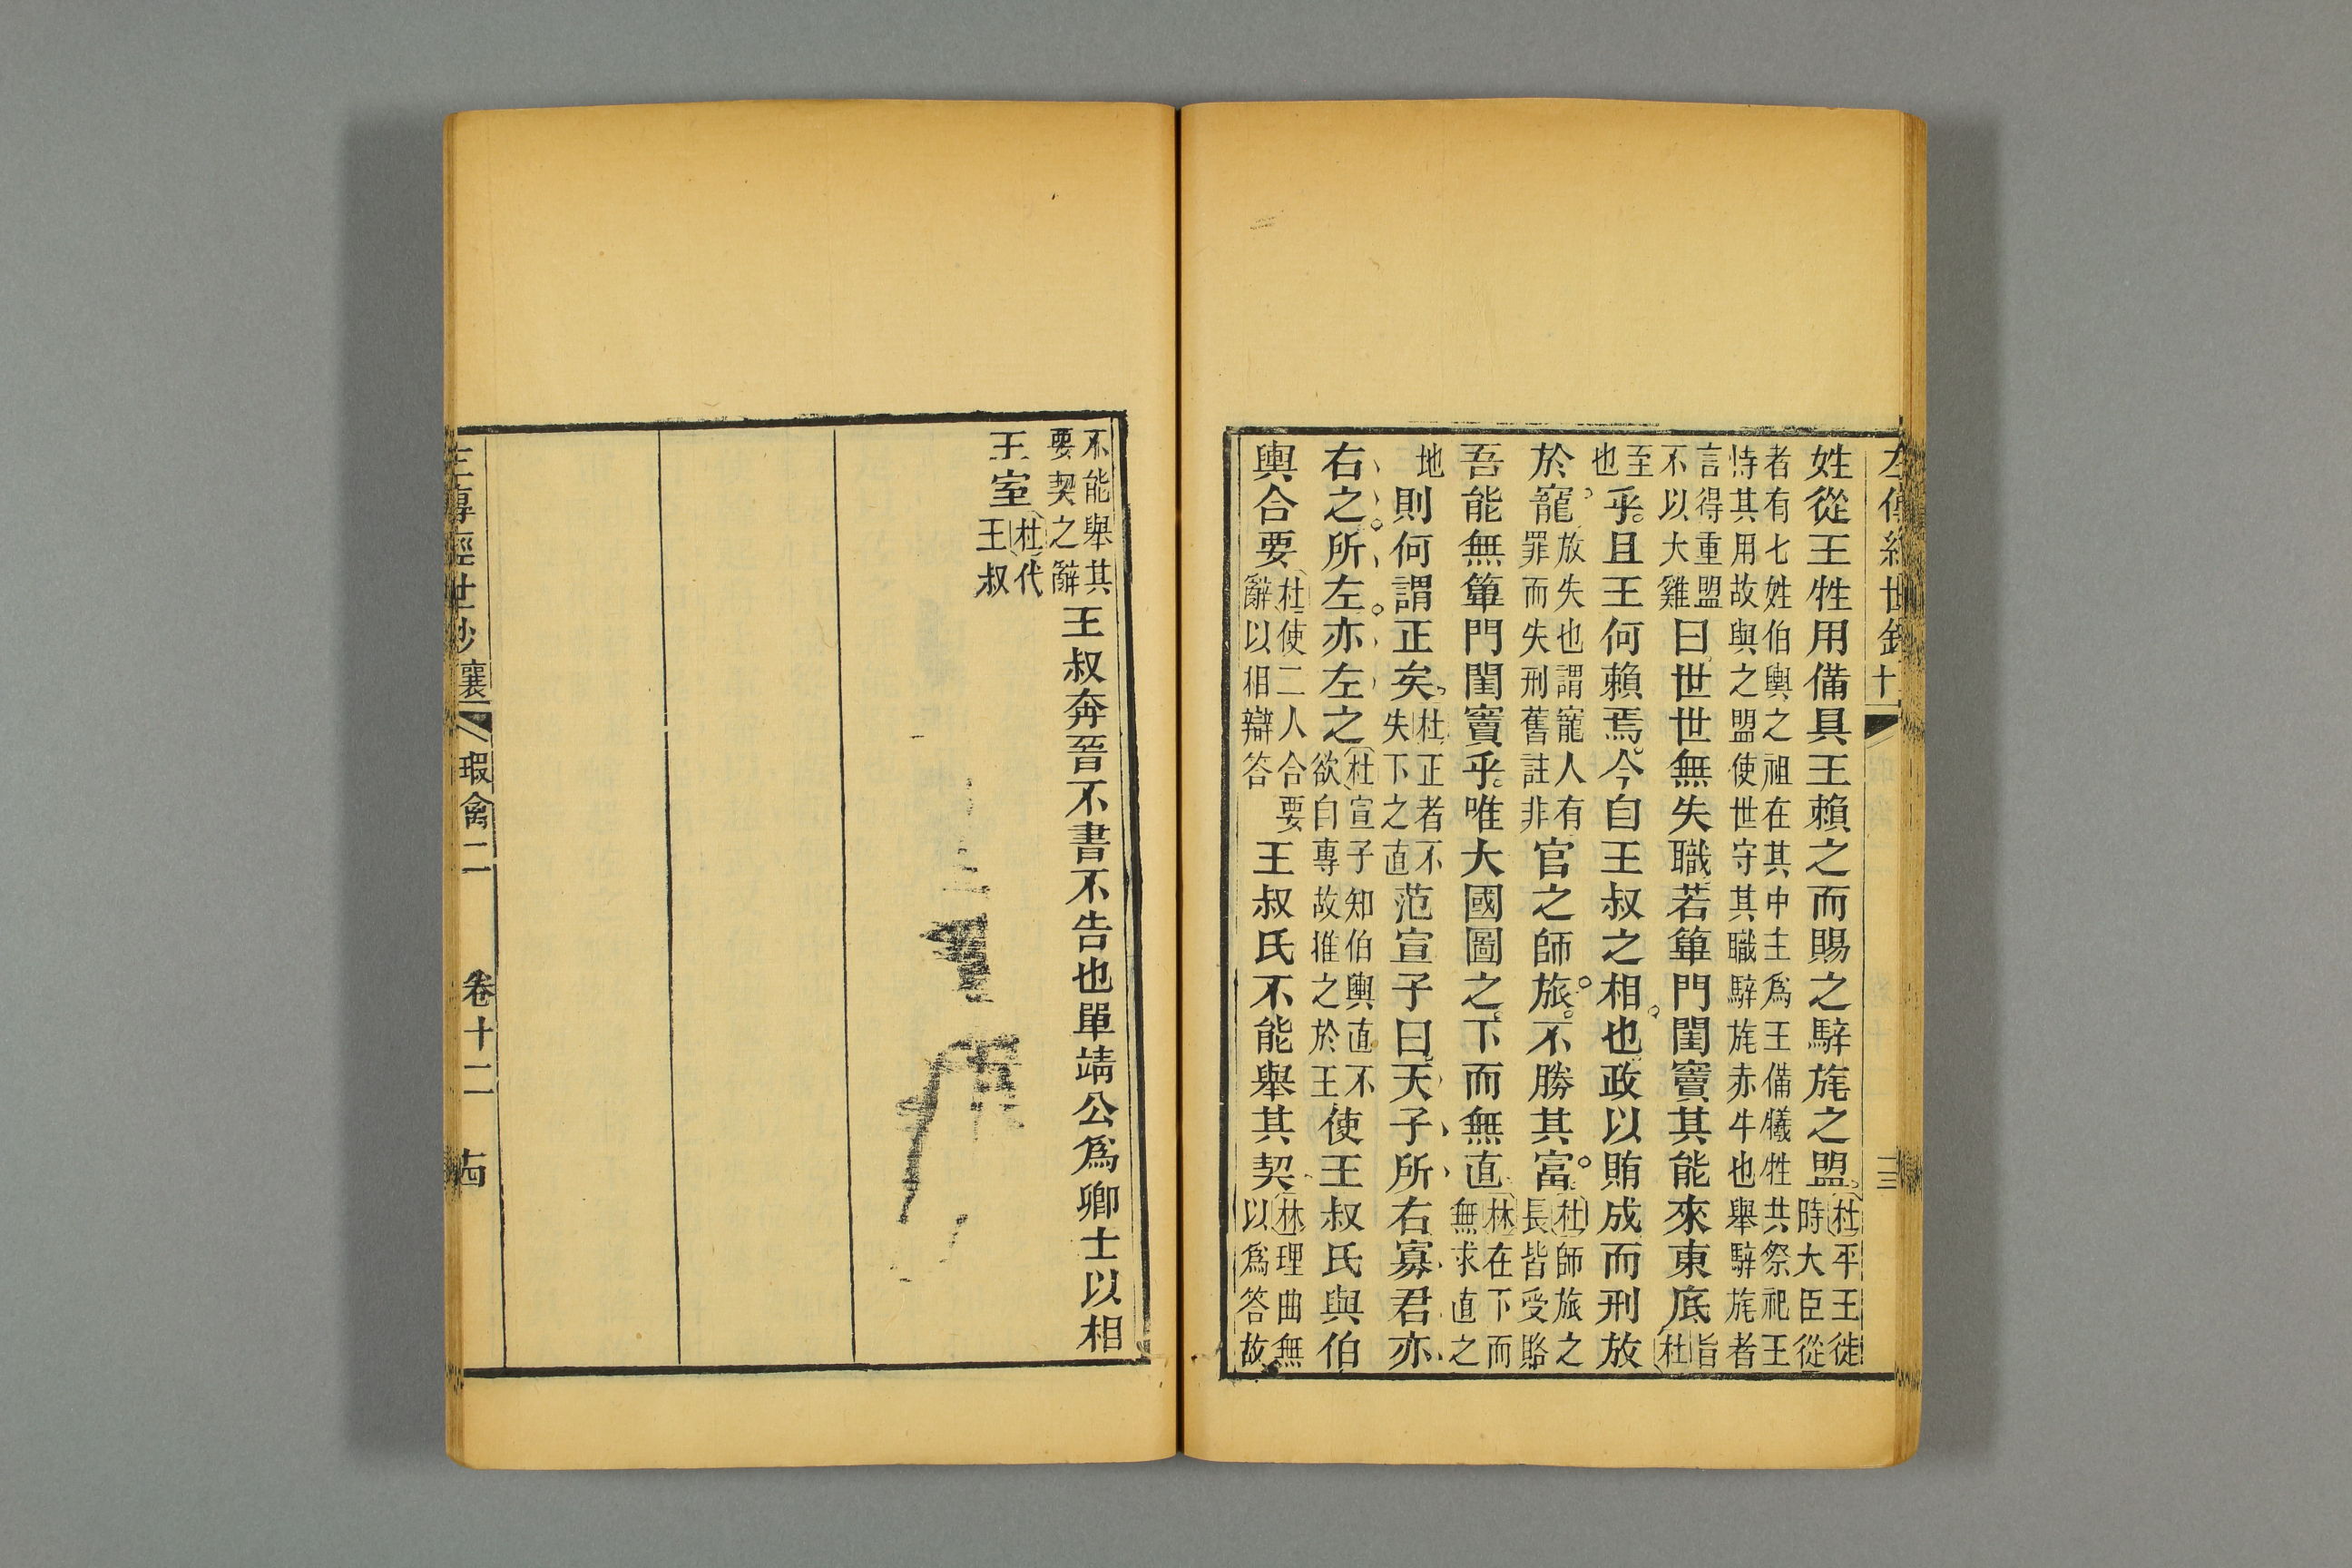 左傳經世鈔 十三
姓從王牲用備具王賴之而賜之騂旄之盟杜平王徙時大臣從
者有七姓伯輿之祖在其中主爲王備犧牲共祭祀王
恃其用故與之盟使世守其職騂旄赤牛也舉騂旄者
言得重盟不以大雞曰世世無失職若篳門閨竇其能來東底旨杜
至也乎且王何賴焉今自王叔之相也政以賄成而刑放
於寵放失也謂寵人有罪而失刑舊註非官之師旅不勝其富杜師旅之長皆受賂
吾能無篳門閨竇乎唯大國圖之下而無直林在下而無求直之
地則何謂正矣杜正者不失下之直范宣子曰天子所右寡君亦
右之所左亦左之杜宣子知伯輿直不欲自專故推之於王使王叔氏與伯
輿合要杜使二人合要辭以相辯答王叔氏不能舉其契林理曲無以爲答故
不能舉其要契之辭王叔奔晉不書不告也單靖公爲卿士以相
王室杜代王叔
左傳經世鈔 襄 瑕禽二 卷十二 十四